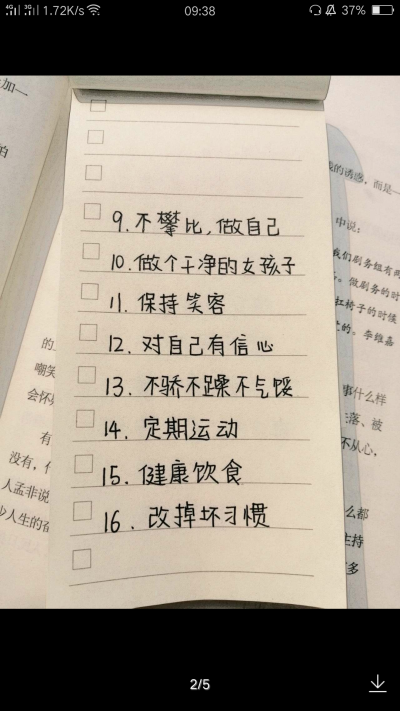 4G 3G 1.72K/s 09:38 37%
加一
怕
9. 不攀比,做自己
10. 做个干净的女孩子
11. 保持笑容
12. 对自己有信心
13. 不骄不躁不气馁
14. 定期运动
15. 健康饮食
16. 改掉坏习惯
的诱惑,而是一
中说:
我们剧务组有两
做剧务的时
扛椅子的时候
的。李维嘉
事什么样
落、被
不从心,
么都
主持
多
的
嘲笑
会怀
有
没有,
人孟非说
少人生的奋
2/5